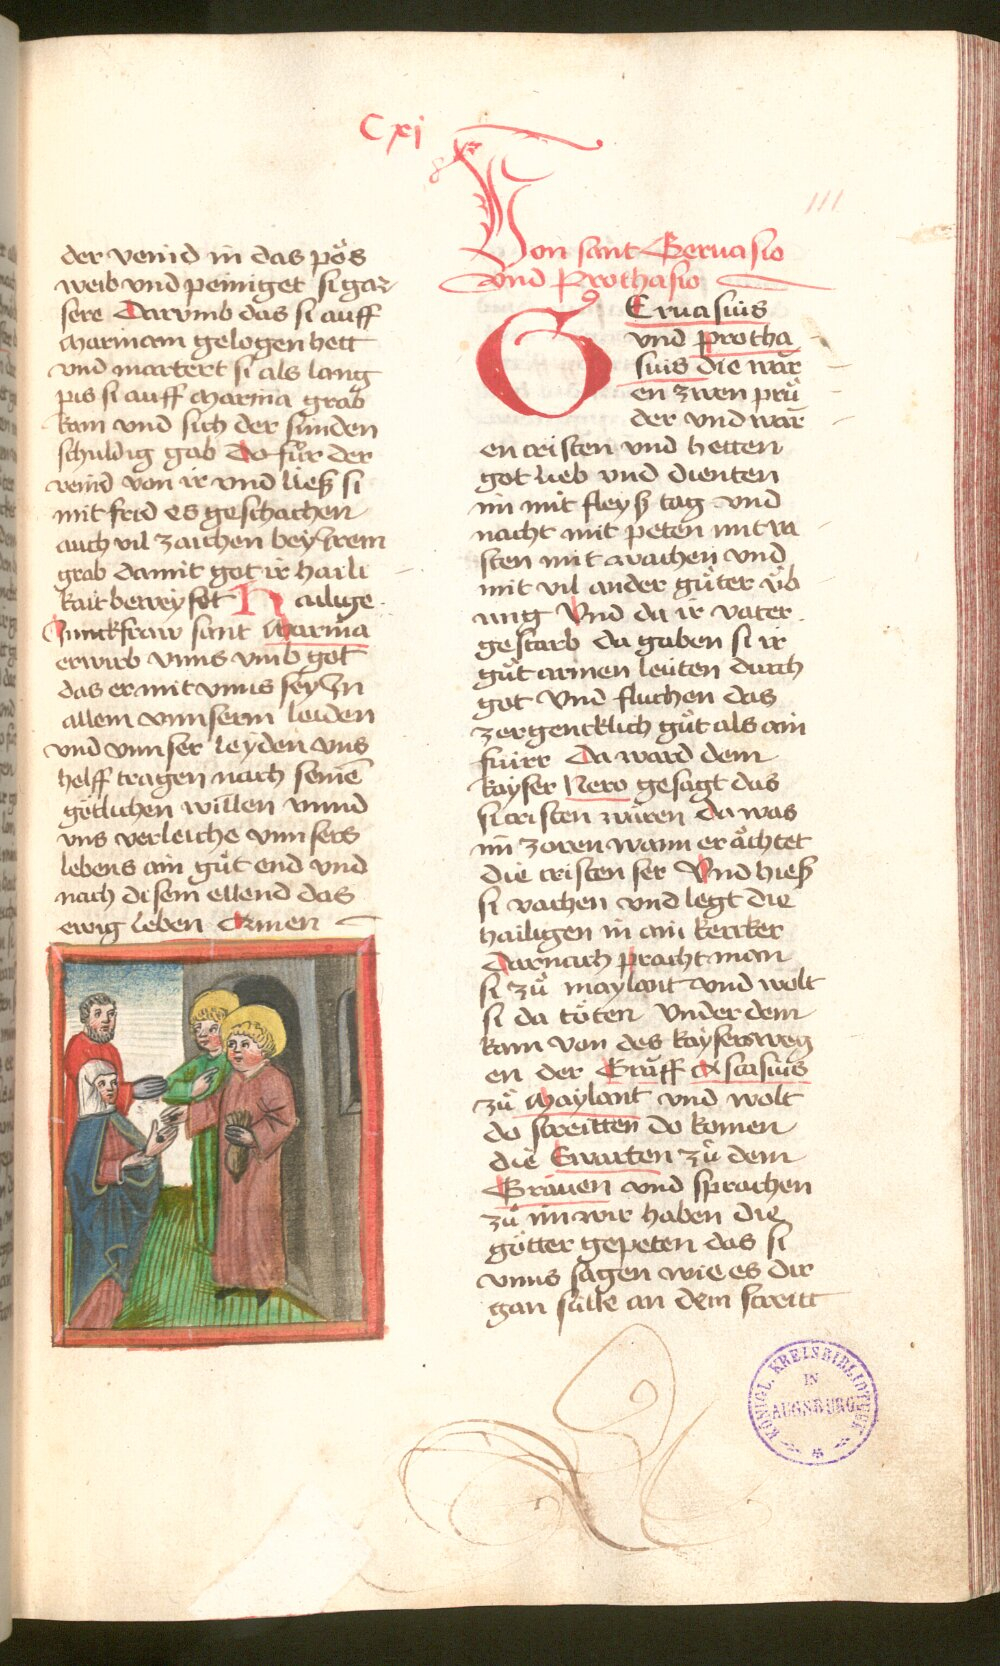 Cxi
111
der veind in das pös
weib und peiniget si gar
sere Darumb das si auff
Marinam gelogen hett
und martert si als lang
pis si auff Marina grab
kam und sich der sünden
schuldig gab Do für der
veind von ir und ließ si
mit frid es geschachen
auch vil zaichen bey irem
grab damit got ir haili
kait beweyset Hailige
Junckfraw sant Marina
erwirb unns umb got
das er mit unns sey In
allem unnserm leiden
und unnser leyden uns
helff tragen nach seinē
götlichen willen unnd
uns verleiche unnsers
lebens ain gůt end und
nach disem ellend das
ewig leben Amen
Von sant Gervasio
und Prothasio
GErvasius
und protha
sius die war
en zwen prů
der und warn
en cristen und hetten
got lieb und dienten
im mit fleyß tag und
nacht mit peten mit va
sten mit wachen und
mit vil ander gůter üb
ung Und da ir vater
gestarb da gaben si ir
gůt armen leüten durch
got Und fluchen das
zergencklich gůt als ain
fürr Da ward dem
kayser Nero gesagt das
si cristen wären Da was
im zoren wann er ächtet
die cristen ser Und hieß
si vachen und legt die
hailigen in ain kercker
Darnach pracht man
si zů maylant und wolt
si da töten Under dem
kam von des kaysers weg
en der Gruff Astasius
zů Maylant und wolt
do streitten do komen
die Ewarten zů dem
Graven und sprachen
zů im wir haben die
götter gepeten das si
unns sagen wie es dir
gan sülle an dem streitt
KÖNIGL. KREISBIBLIOTHEK
IN
AUGSBURG